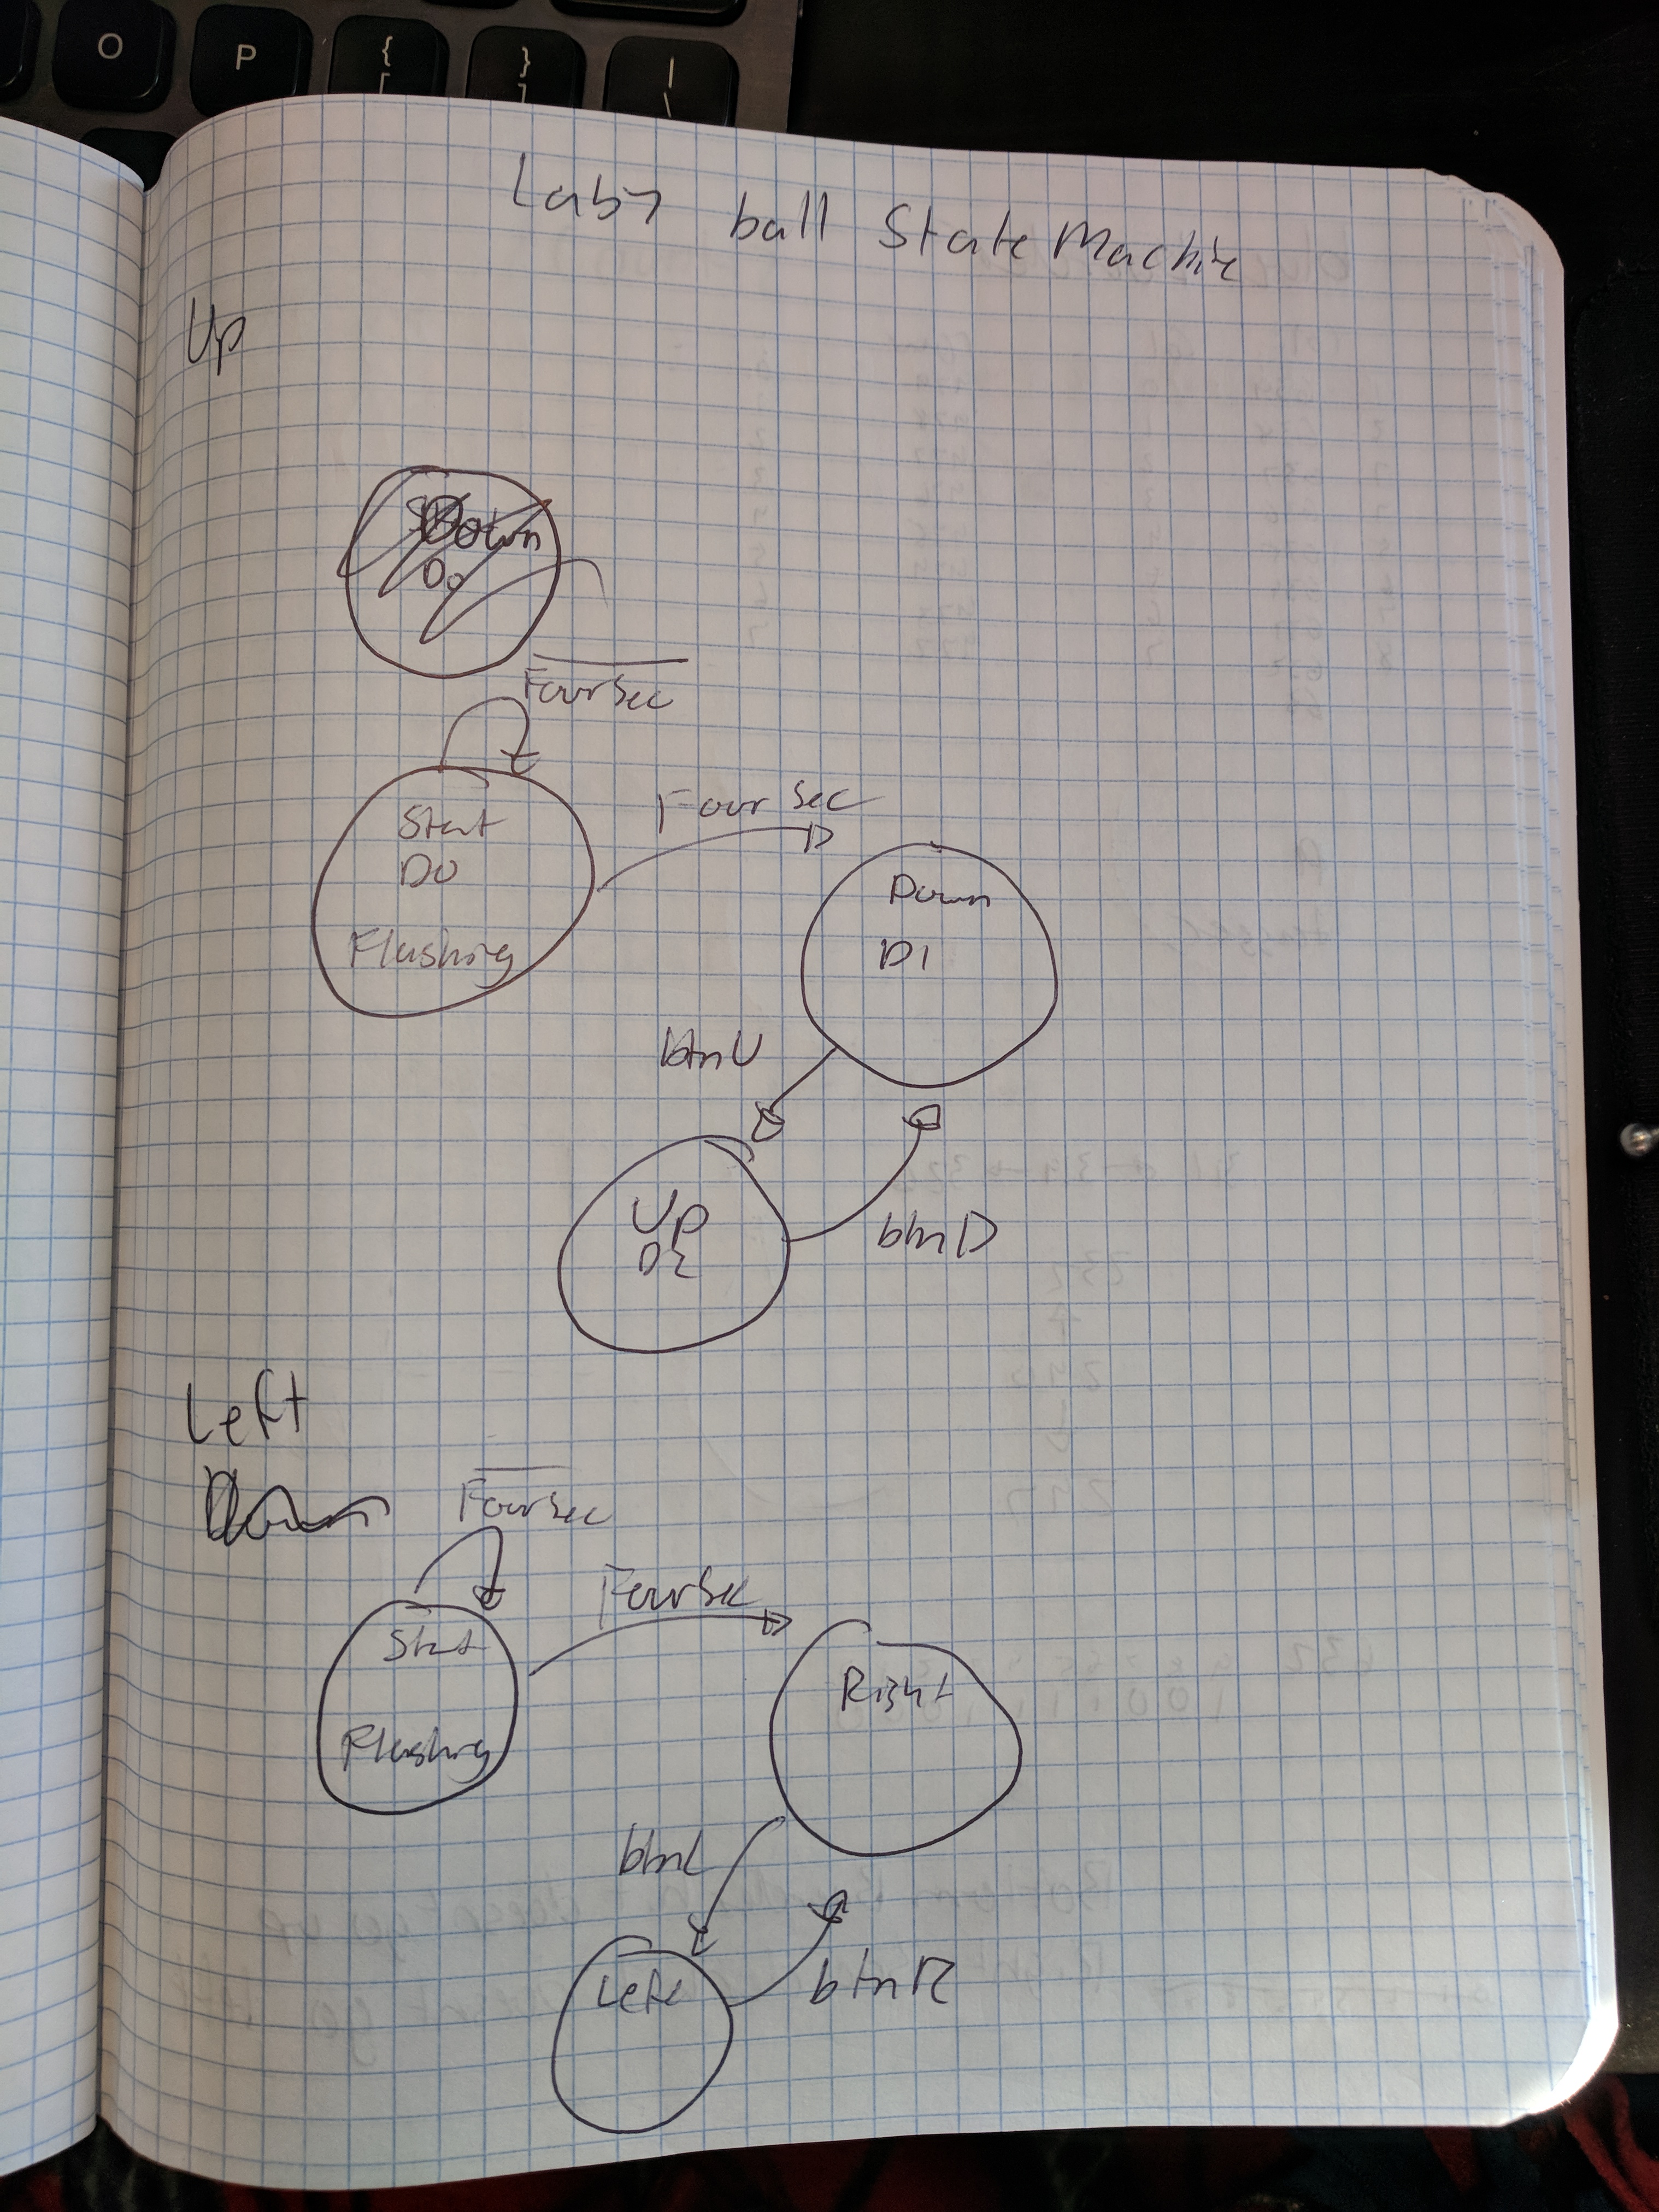 O P { [ } ] | \
Lab7 ball State Machine
Up
Down
D0
FourSec
Start
D0
Flashing
Four Sec
Down
D1
btnU
Up
D2
btnD
Left
Down
FourSec
FourSec
Start
Flashing
Right
btnL
Left
btnR